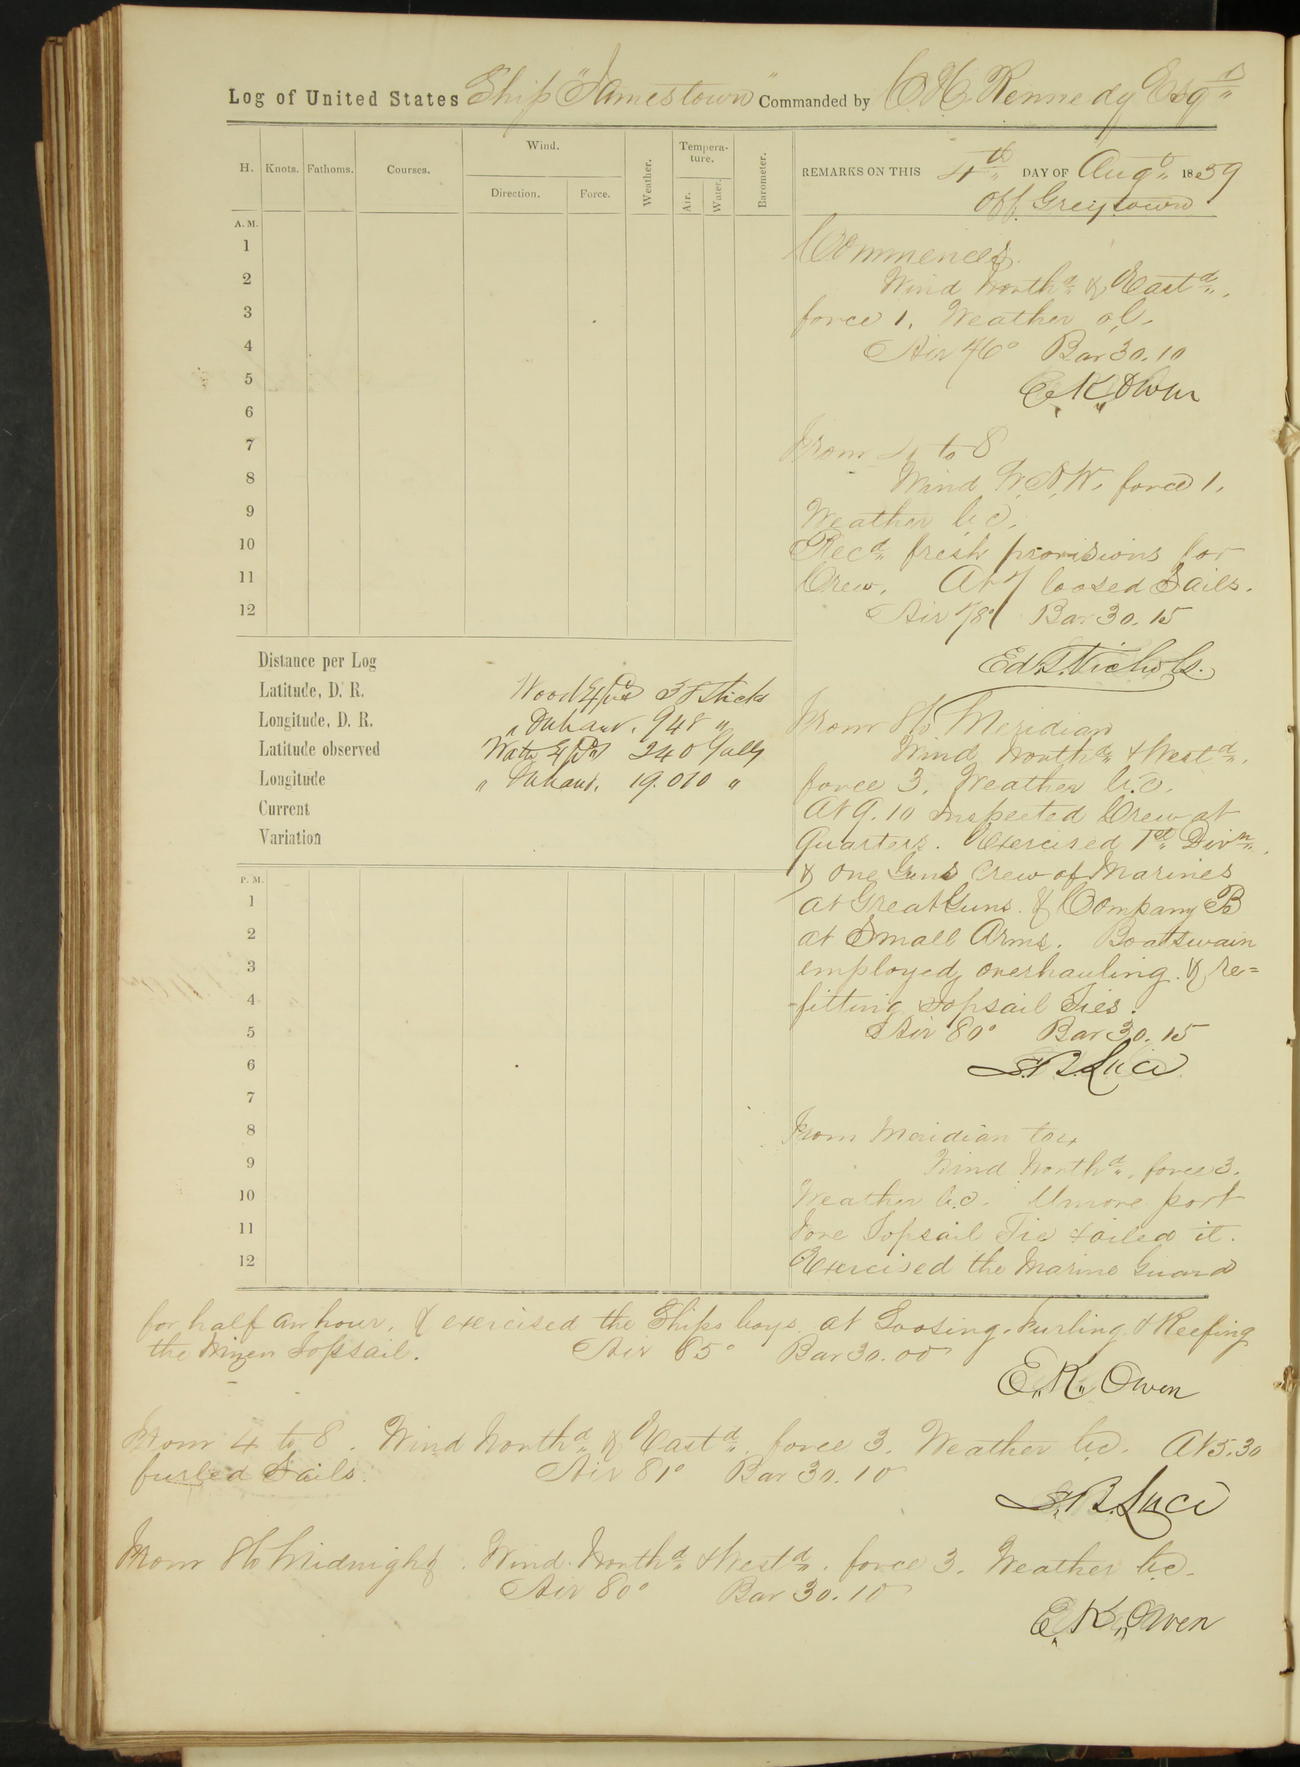 Log of United States Ship "Jamestown" Commanded by C H Kennedy Esqr
H. Knots. Fathoms. Courses. Wind. Direction. Force. Weather. Tempera-ture. Air. Water. Barometer.
REMARKS ON THIS 4th DAY OF Augt 1859
Off Greytown
A. M.
1
2
3
4
5
6
7
8
9
10
11
12
Commences
Wind Northd & Eastd,
force 1. Weather o.c.
Air 76° Bar 30.10
E. K. Owen
From 4 to 8
Wind W.N.W. force 1.
Weather b.c.
Recd fresh provisions for
Crew. At 7 loosed Sails.
Air 78° Bar 30.15
Ed. T. Nichols.
Distance per Log
Latitude, D. R.
Longitude, D. R.
Latitude observed
Longitude
Current
Variation
Wood Expd 38 Sticks
" On hand. 948 "
Water Expd 240 Galls
" On hand. 19.010 "
From 8 to Meridian
Wind Northd & Westd,
force 3. Weather b.c.
At 9.10 inspected Crew at
Quarters. Exercised 1st Divn
& one Guns Crew of Marines
at Great Guns. & Company B
at Small Arms. Boatswain
employed overhauling & re=
fitting Topsail Ties.
Air 80° Bar 30.15
S. B. Luce
P. M.
1
2
3
4
5
6
7
8
9
10
11
12
From Meridian to 4
Wind Northd, force 3.
Weather b.c. Unrove port
Fore Topsail Tie & oiled it.
Exercised the Marine Guard
for half an hour, & exercised the Ships boys at Loosing, Furling & Reefing
the Mizen Topsail. Air 85° Bar 30.00
E. K. Owen
From 4 to 8. Wind Northd & Eastd, force 3. Weather b.c. At 5.30
furled Sails. Air 81° Bar 30.10
S. B. Luce
From 8 to Midnight. Wind Northd & Westd, force 3. Weather b.c.
Air 80° Bar 30.10
E. K. Owen